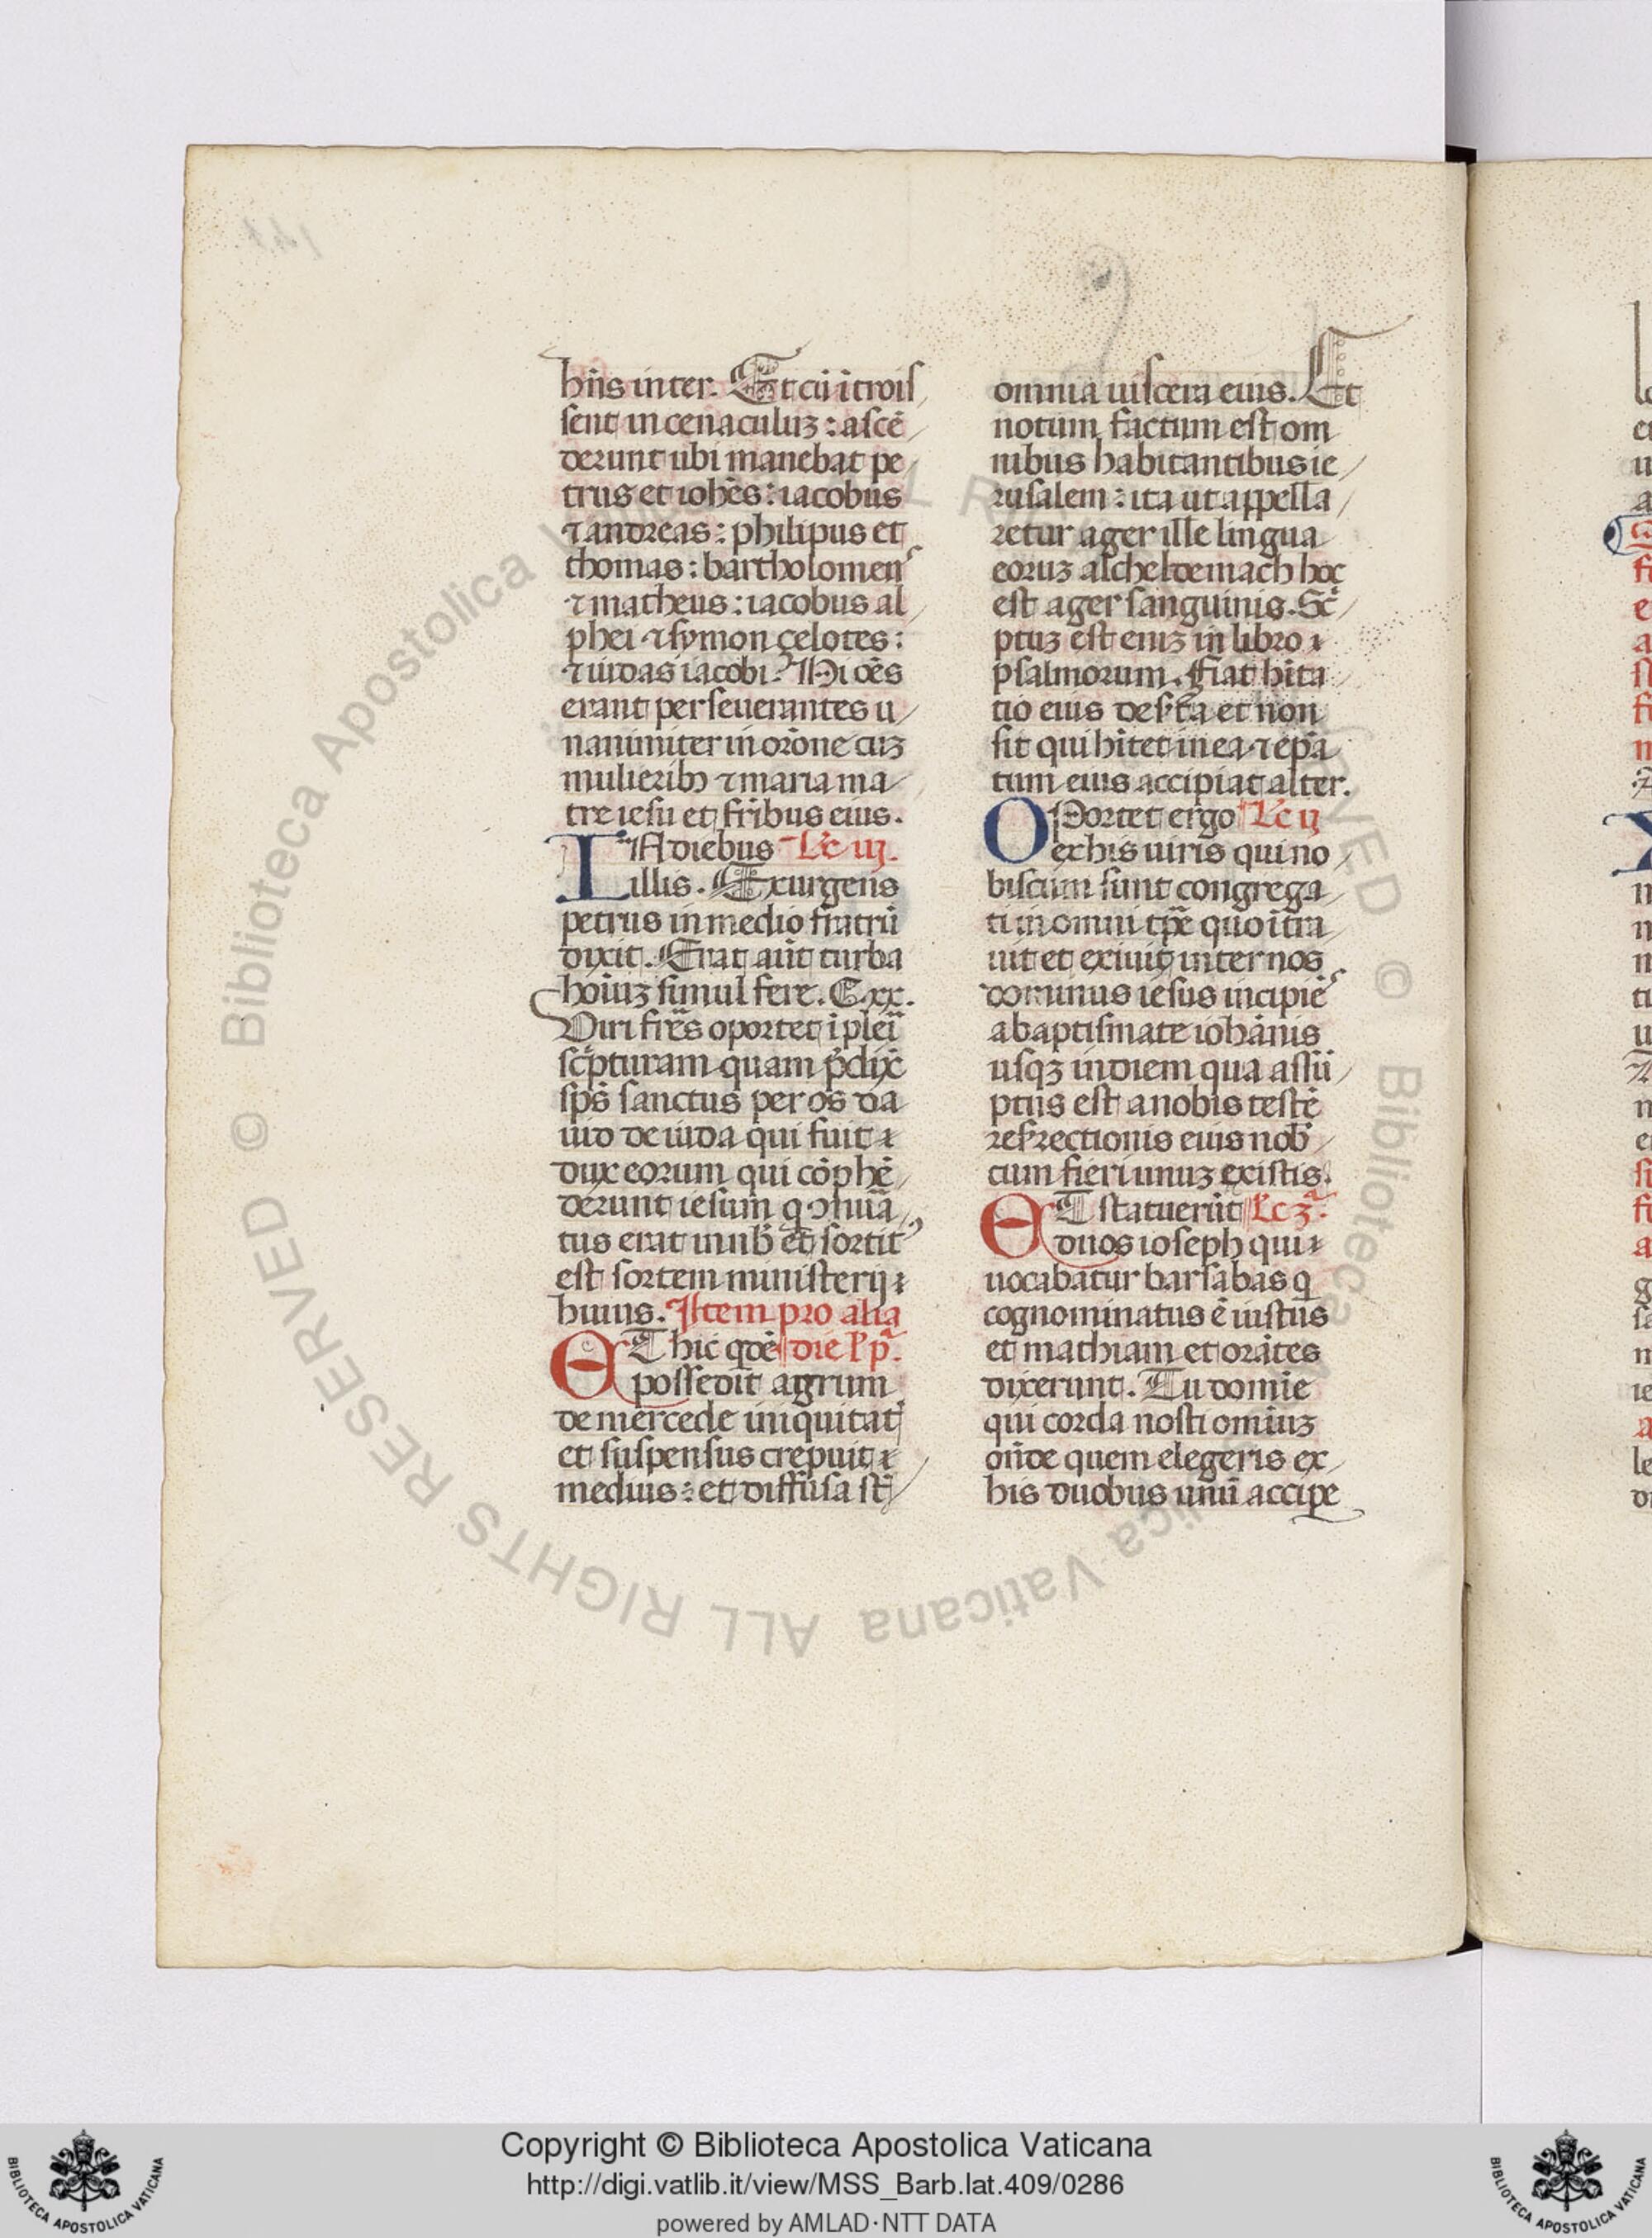 hn̄s inter. Et cū ītroiſ
ſent in cenaculuꝫ : aſcē
derunt ubi manebat pe
trus et ioh̄es : iacobus
⁊ andreas : philipus et
thomas : bartholomeuˢ
⁊ matheus : iacobus al
phei ⁊ ſymon çelotes :
⁊ iudas iacobi. Hi oēs
erant perſeuerantes u
nanimiter in orōne cuꝫ
mulieribꝫ ⁊ maria ma
tre ieſu et fr̄ibus eius.
IN diebus Lc̄ iij.
illis. Exurgens
petrus in medio fratrū
dixit. Erat aūt turba
hoīuꝫ ſimul fere. C.xx.
Viri fr̄es oportet īpleı̄
ſcpturam quam p̄dix̄
ſpūs ſanctus per os da
uid de iuda qui fuit
dux eorum qui cōphē
derunt ieſum q ꝯnuā
tus erat in nob̄ et ſortit᾽
eſt ſortem miniſterij
huius. Item pro alia
ET hic qdē die l' pª.
poſſedit agrum
de mercede iniquitat
et ſuſpenſus crepuit
medius : et diffuſa ſt̄
omnia uiſcera eius. Et
notum factum eſt om
nibus habitantibus ie
ruſalem : ita ut appella
retur ager ille lingua
eoruꝫ alcheldemach hoc
eſt ager ſanguinis. Sc
ptuꝫ eſt eniꝫ in libro
pſalmorum. Fiat hīta
tio eius deſ'ta et non
ſit qui hītet in ea ⁊ ep̄a
tum eius accipiat alter.
OPortet ergo Lc̄ ij
ex his uiris qui no
biſcum ſunt congrega
ti in omni tpē quo ītra
uit et exiuit inter nos
dominus ieſus incipiēˢ
a baptiſmate iohānis
uſqꝫ in diem qua aſſū
ptus eſt a nobis teſtē
reſ'rectionis eius nob̄
cum fieri unuꝫ ex iſtis.
ET ſtatuerūt Lc 3ª.
duos ioſeph qui
uocabatur barſabas q
cognominatus ē iuſtus
et mathiam et orātes
dixerunt. Tu domīe
qui corda noſti omīuꝫ
oñde quem elegeris ex
his duobus unū accipe
Copyright © Biblioteca Apostolica Vaticana
http://digi.vatlib.it/view/MSS_Barb.lat.409/0286
powered by AMLAD·NTT DATA